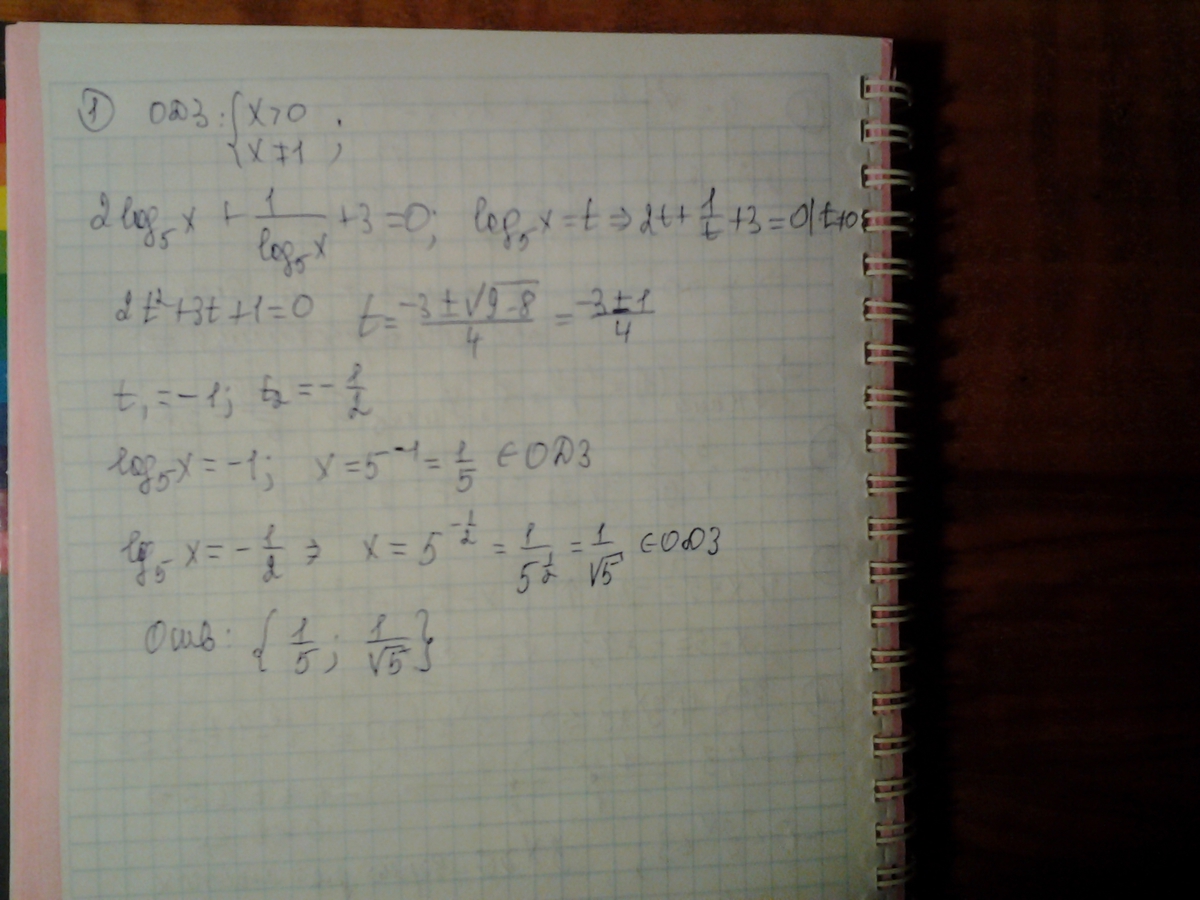 ① ОДЗ: { x>0 ;
{ x≠1 ;
2log₅x + 1/log₅x + 3 = 0; log₅x = t ⇒ 2t + 1/t + 3 = 0 | t≠0
2t² + 3t + 1 = 0 t = (-3 ± √(9-8))/4 = (-3 ± 1)/4
t₁ = -1; t₂ = -1/2
log₅x = -1; x = 5⁻¹ = 1/5 ∈ ОДЗ
lg₅x = -1/2 ⇒ x = 5^(-1/2) = 1/5^(1/2) = 1/√5 ∈ ОДЗ
Отв: { 1/5 ; 1/√5 }